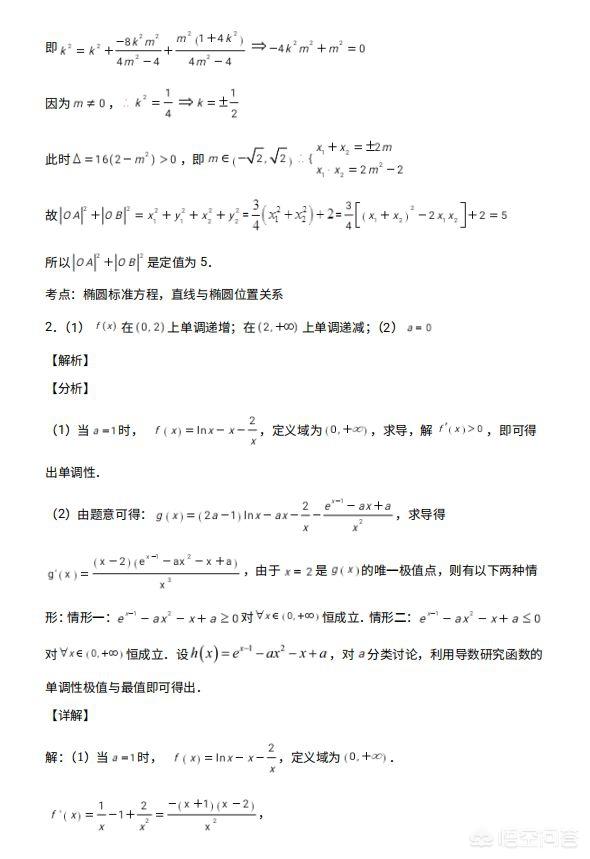 即 k² = k² + (-8k²m²)/(4m²-4) + m²(1+4k²)/(4m²-4) ⇒ -4k²m² + m² = 0
因为 m ≠ 0 , ∴ k² = 1/4 ⇒ k = ±1/2
此时 Δ = 16(2-m²) > 0 , 即 m ∈ (-√2, √2) ∴ { x₁ + x₂ = ±2m
x₁·x₂ = 2m² - 2
故 |OA|² + |OB|² = x₁² + y₁² + x₂² + y₂² = 3/4(x₁² + x₂²) + 2 = 3/4[(x₁ + x₂)² - 2x₁x₂] + 2 = 5
所以 |OA|² + |OB|² 是定值为 5．
考点：椭圆标准方程，直线与椭圆位置关系
2．（1） f(x) 在 (0, 2) 上单调递增；在 (2, +∞) 上单调递减；（2） a = 0
【解析】
【分析】
（1）当 a = 1 时， f(x) = lnx - x - 2/x，定义域为 (0, +∞)，求导，解 f'(x) > 0，即可得
出单调性．
（2）由题意可得： g(x) = (2a-1)lnx - ax - 2/x - (e^{x-1} - ax + a)/x²，求导得
g'(x) = (x-2)(e^{x-1} - ax² - x + a)/x³，由于 x = 2 是 g(x) 的唯一极值点，则有以下两种情
形：情形一： e^{x-1} - ax² - x + a ≥ 0 对 ∀x∈(0, +∞) 恒成立．情形二： e^{x-1} - ax² - x + a ≤ 0
对 ∀x∈(0, +∞) 恒成立．设 h(x) = e^{x-1} - ax² - x + a，对 a 分类讨论，利用导数研究函数的
单调性极值与最值即可得出．
【详解】
解：（1）当 a = 1 时， f(x) = lnx - x - 2/x，定义域为 (0, +∞)．
f'(x) = 1/x - 1 + 2/x² = -(x+1)(x-2)/x²，
悟空问答